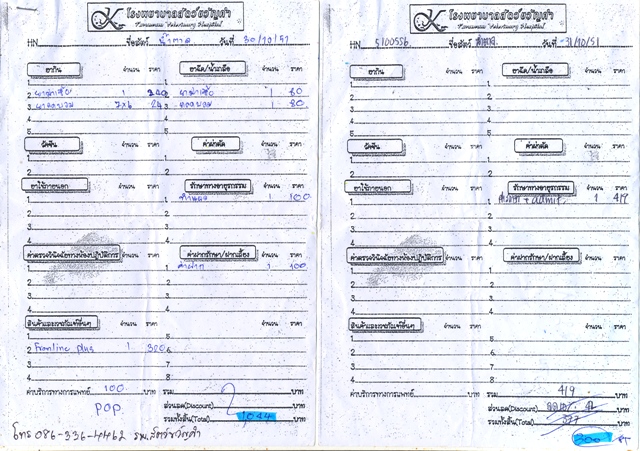 โรงพยาบาลสัตว์ขวัญคำ
Veterinary Hospital
HN ชื่อสัตว์ น้ำตาล วันที่ 30/10/51
ยากิน จำนวน ราคา ยาฉีด/น้ำเกลือ จำนวน ราคา
1. 1.
2 ยาฆ่าเชื้อ 1 ยาฆ่าเชื้อ 1 80
3 ยาลดบวม 7x6 24 ลดบวม 1 80
4. 4.
5 5
วัคซีน จำนวน ราคา ค่าผ่าตัด จำนวน ราคา
1. 1.
2. 2.
ยาใช้ภายนอก จำนวน ราคา รักษาทางอายุรกรรม จำนวน ราคา
1. ทำแผล 1 100
2. 2.
3. 3.
4. 4.
ค่าตรวจวินิจฉัยทางห้องปฏิบัติการ จำนวน ราคา ค่าฝากรักษา/ฝากเลี้ยง จำนวน ราคา
1. ค่าฝาก 1 100
2. 2.
3. 3.
4. 4.
สินค้าและเวชภัณฑ์อื่นๆ จำนวน ราคา
1. 5
2 Fronline plus 1 320 6.
3. 7
4. 8
ค่าบริการทางการแพทย์ 100 บาท รวม บาท
ส่วนลด(Discount) บาท
รวมทั้งสิ้น(Total) 1044 บาท
POP.
โทร 086-336-4462 รพ.สัตว์ขวัญคำ
โรงพยาบาลสัตว์ขวัญคำ
Veterinary Hospital
HN 5100556 ชื่อสัตว์ น้ำตาล วันที่ 31/10/51
ยากิน จำนวน ราคา ยาฉีด/น้ำเกลือ จำนวน ราคา
1. 1.
2. 2.
3. 3.
4. 4.
5 5
วัคซีน จำนวน ราคา ค่าผ่าตัด จำนวน ราคา
1. 1.
2. 2.
ยาใช้ภายนอก จำนวน ราคา รักษาทางอายุรกรรม จำนวน ราคา
1. + admit 1 419
2. 2.
3. 3.
4. 4.
ค่าตรวจวินิจฉัยทางห้องปฏิบัติการ จำนวน ราคา ค่าฝากรักษา/ฝากเลี้ยง จำนวน ราคา
1. 1.
2. 2.
3. 3.
4. 4.
สินค้าและเวชภัณฑ์อื่นๆ จำนวน ราคา
1. 5
2. 6.
3. 7
4. 8
ค่าบริการทางการแพทย์ บาท รวม 419 บาท
ส่วนลด(Discount) 42 บาท
รวมทั้งสิ้น(Total) 377 บาท
300